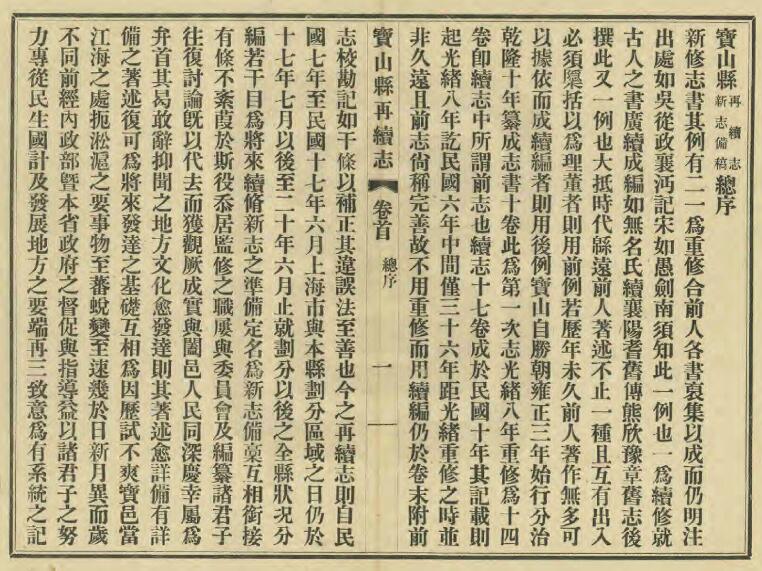 寶山縣再續志新志備稿總序
新修志書其例有二一爲重修合前人各書裒集以成而仍明注
出處如吳從政襄沔記宋如愚劍南須知此一例也一爲續修就
古人之書廣續成編如無名氏續襄陽耆舊傳熊欣豫章舊志後
撰此又一例也大抵時代緜遠前人著述不止一種且互有出入
必須檃括以爲理董者則用前例若歷年未久前人著作無多可
以據依而成續編者則用後例寶山自勝朝雍正三年始行分治
乾隆十年纂成志書十卷此爲第一次志光緒八年重修爲十四
卷卽續志中所謂前志也續志十七卷成於民國十年其記載則
起光緒八年訖民國六年中間僅三十六年距光緒重修之時並
非久遠且前志尙稱完善故不用重修而用續編仍於卷末附前
寶山縣再續志 卷首 總序 一
志校勘記如干條以補正其違誤法至善也今之再續志則自民
國七年至民國十七年六月上海市與本縣劃分區域之日仍於
十七年七月以後至二十年六月止就劃分以後之全縣狀況分
編若干目爲將來續修新志之準備定名爲新志備稾互相銜接
有條不紊葭於斯役忝居監修之職屢與委員會及編纂諸君子
往復討論旣以代去而獲觀厥成實與闔邑人民同深慶幸屬爲
弁首其曷敢辭抑聞之地方文化愈發達則其著述愈詳備有詳
備之著述復可爲將來發達之基礎互相爲因歷試不爽寶邑當
江海之處扼淞滬之要事物至蕃蛻變至速幾於日新月異而歲
不同前經內政部曁本省政府之督促與指導益以諸君子之努
力專從民生國計及發展地方之要端再三致意爲有系統之記